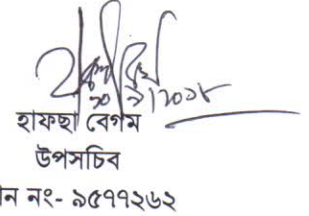 হাফছা বেগম
উপসচিব
ন নং- ৯৫৭৭২৬২